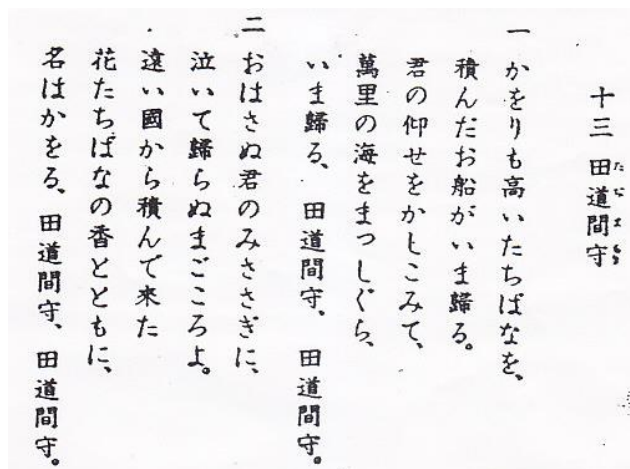 十三 田道間守
たぢまもり
一 かをりも高いたちばなを、
積んだお船がいま歸る。
君の仰せをかしこみて、
萬里の海をまっしぐら、
いま歸る、田道間守、田道間守。
二 おはさぬ君のみささぎに、
泣いて歸らぬまごころよ。
遠い國から積んで來た
花たちばなの香とともに、
名はかをる、田道間守、田道間守。